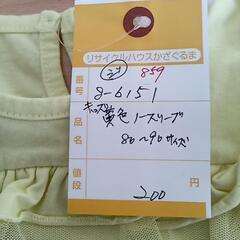 リサイクルハウスかざぐるま
859
番号 8-6151
品名 キッズ 黄色 ノースリーブ
80~90サイズ
値段 200 円